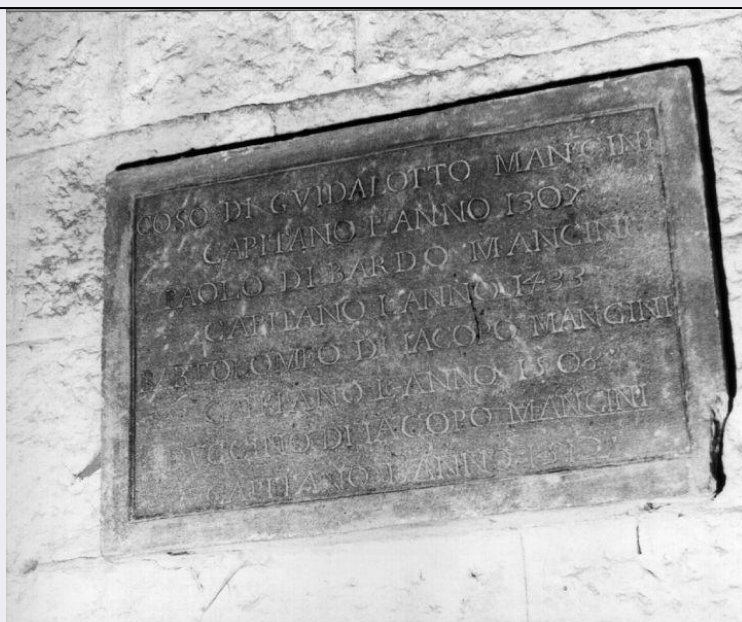 COSO DI GVIDALOTTO MANCINI
CAPITANO L'ANNO 1307
PAOLO DI BARDO MANCINI
CAPITANO L'ANNO 1433
BARTOLOMEO DI IACOPO MANCINI
CAPITANO L'ANNO 1508
DVCCINO DI IACOPO MANCINI
CAPITANO L'ANNO